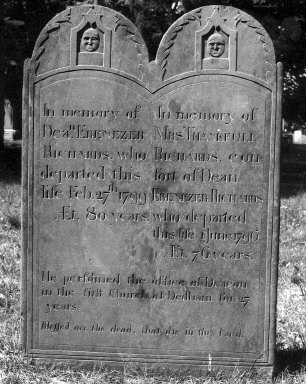 In memory of
Deaⁿ. Ebenezer
Richards, who
departed this
life Feb. 27th 1799
Æt. 80 years.
In memory of
Mrs. Thankfull
Richards, con
sort of Dean
Ebenezer Richards
who departed
this life June 1796
Æt. 76 years.
He performed the office of Deacon
in the first Church of Dedham for 27
years.
Blessed are the dead, that die in the Lord.